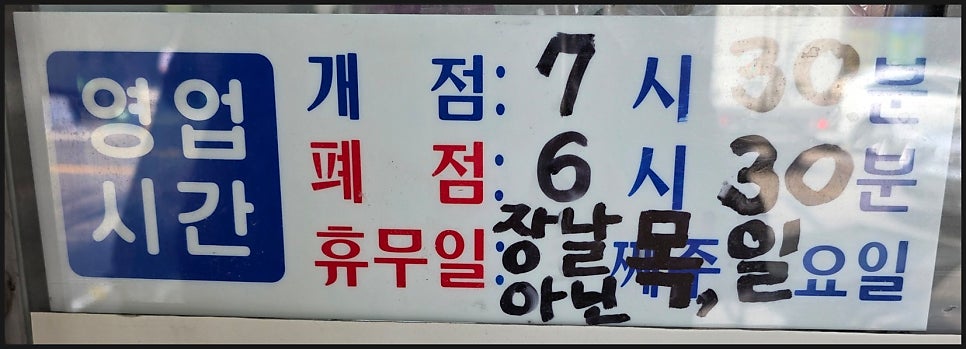 영업
시간
개 점: 7 시 30 분
폐 점: 6 시 30 분
휴무일: 장날 아닌 째주 목, 일 요일